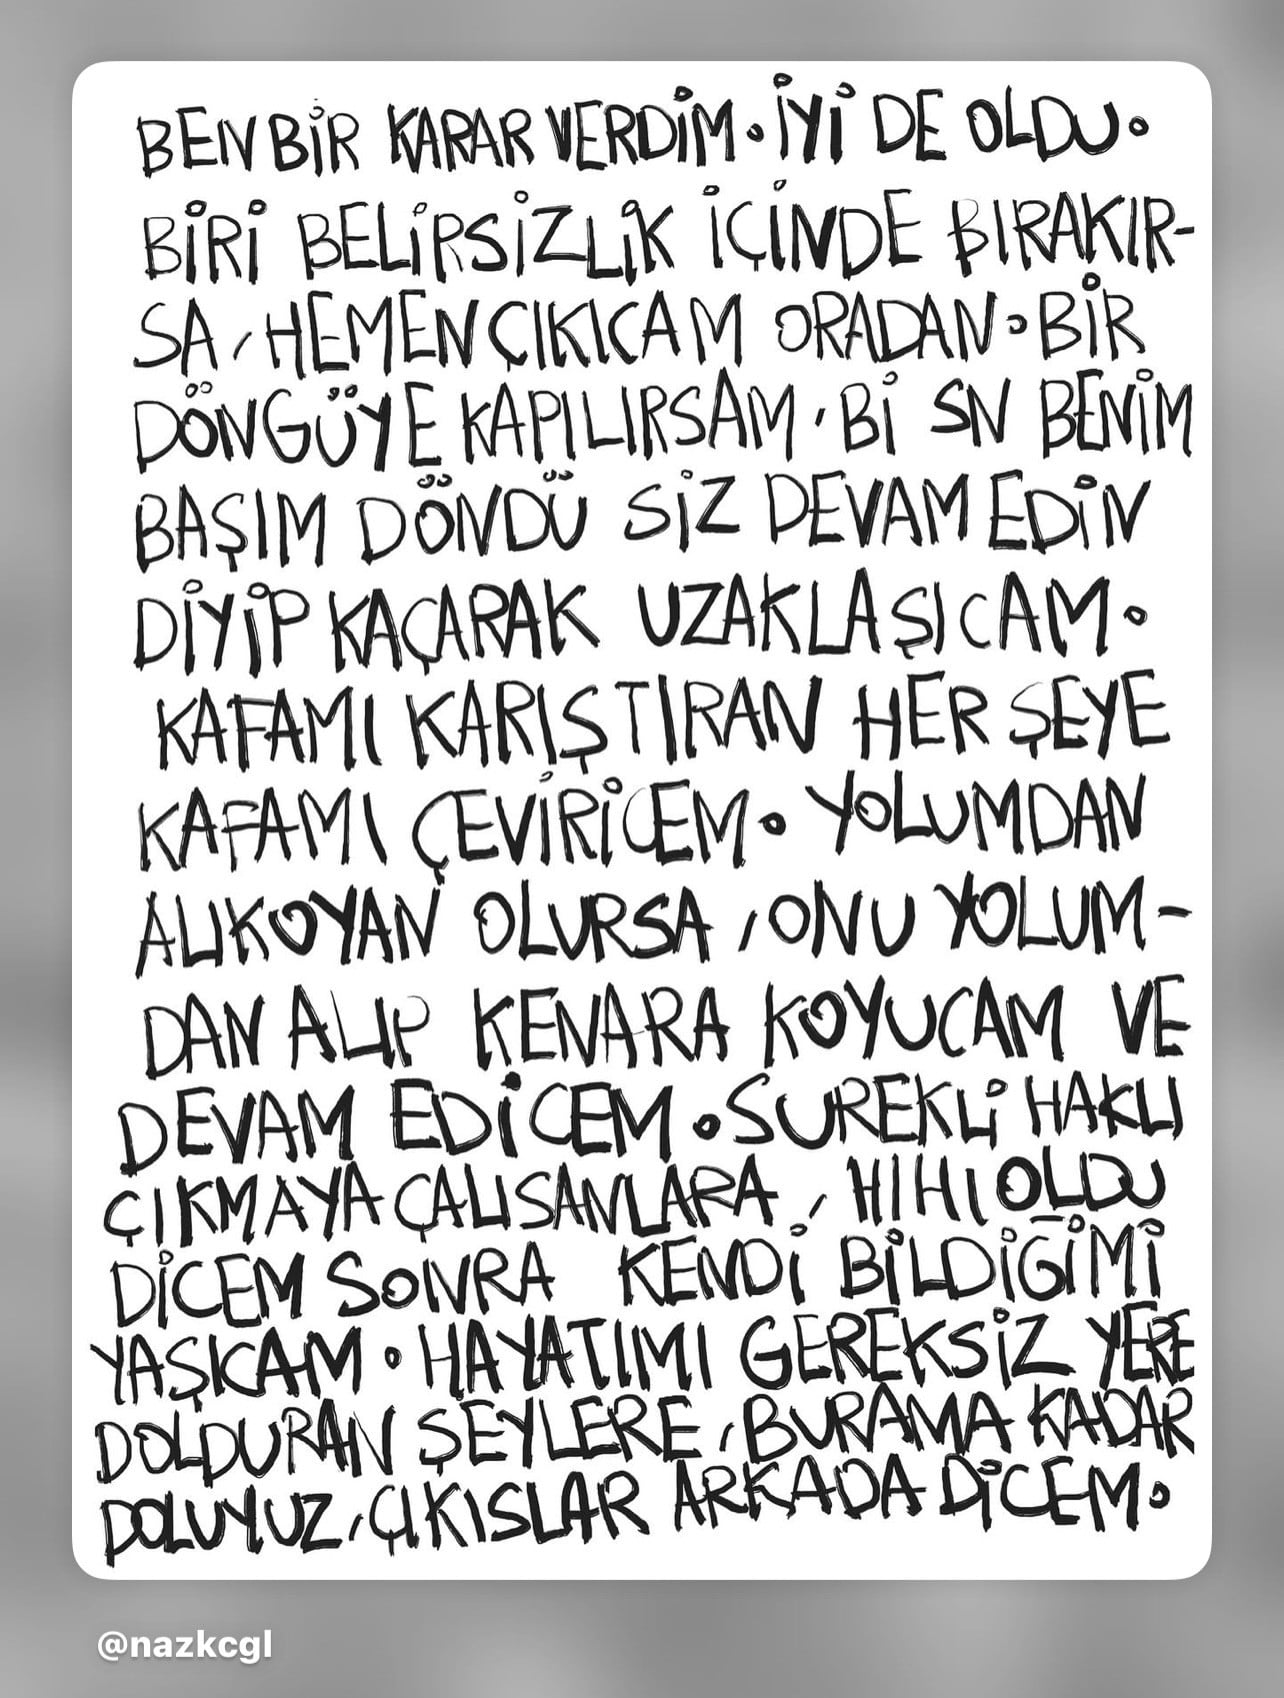 BEN BİR KARAR VERDİM. İYİ DE OLDU.
BİRİ BELİRSİZLİK İÇİNDE BIRAKIR-
SA, HEMEN ÇIKICAM ORADAN. BİR
DÖNGÜYE KAPILIRSAM, Bİ SN BENİM
BAŞIM DÖNDÜ SİZ DEVAM EDİN
DİYİP KAÇARAK UZAKLAŞICAM.
KAFAMI KARIŞTIRAN HER ŞEYE
KAFAMI ÇEVİRİCEM. YOLUMDAN
ALIKOYAN OLURSA, ONU YOLUM-
DAN ALIP KENARA KOYUCAM VE
DEVAM EDİCEM. SUREKLİ HAKLI
ÇIKMAYA ÇALISANLARA, HIHI OLDU
DİCEM SONRA KENDİ BİLDİĞİMİ
YAŞICAM. HAYATIMI GEREKSİZ YERE
DOLDURAN ŞEYLERE, BURAMA KADAR
DOLUYUZ, ÇIKISLAR ARKADA DİCEM.
@nazkcgl